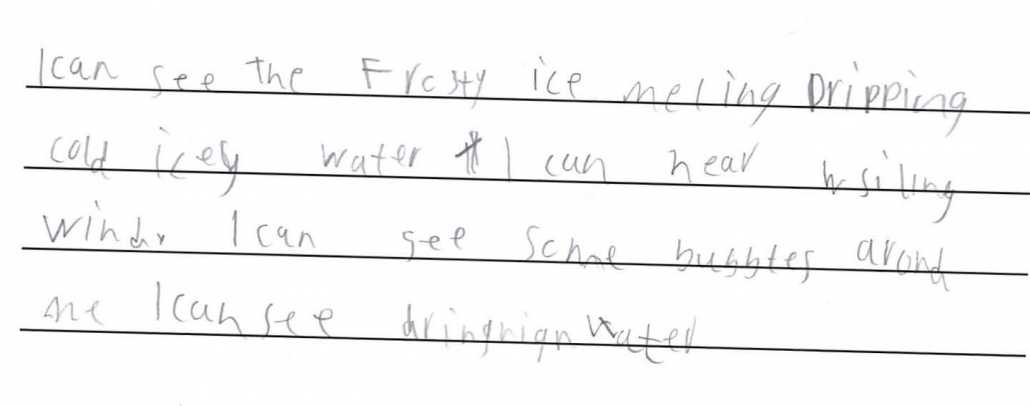 I can see the Frosty ice meling Dripping
cold icey water I can hear wsiling
wind. I can see some bubbles arond
me I can see dringnign water